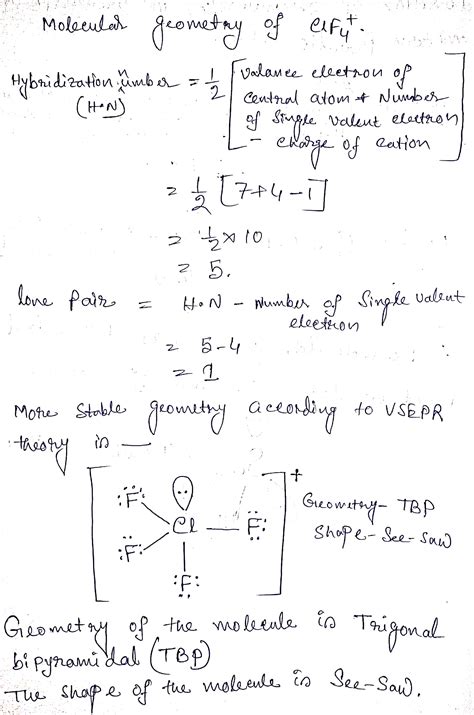 Molecular geometry of ClF4+.
Hybridization number = 1/2 [valance electron of
(H.N) central atom + Number
of Single valent electron
- charge of cation]
= 1/2 [7+4-1]
= 1/2 × 10
= 5.
lone Pair = H.N - Number of Single valent
electron
= 5-4
= 1
More Stable geometry according to VSEPR
theory is —
:F: :F: Cl F: :F: +
Geometry- TBP
Shape- See-Saw
Geometry of the molecule is Trigonal
bipyramidal (TBP)
The shape of the molecule is See-Saw.